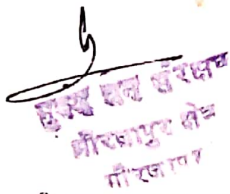 मुख्य वन संरक्षक
गोरखपुर क्षेत्र
गोरखपुर